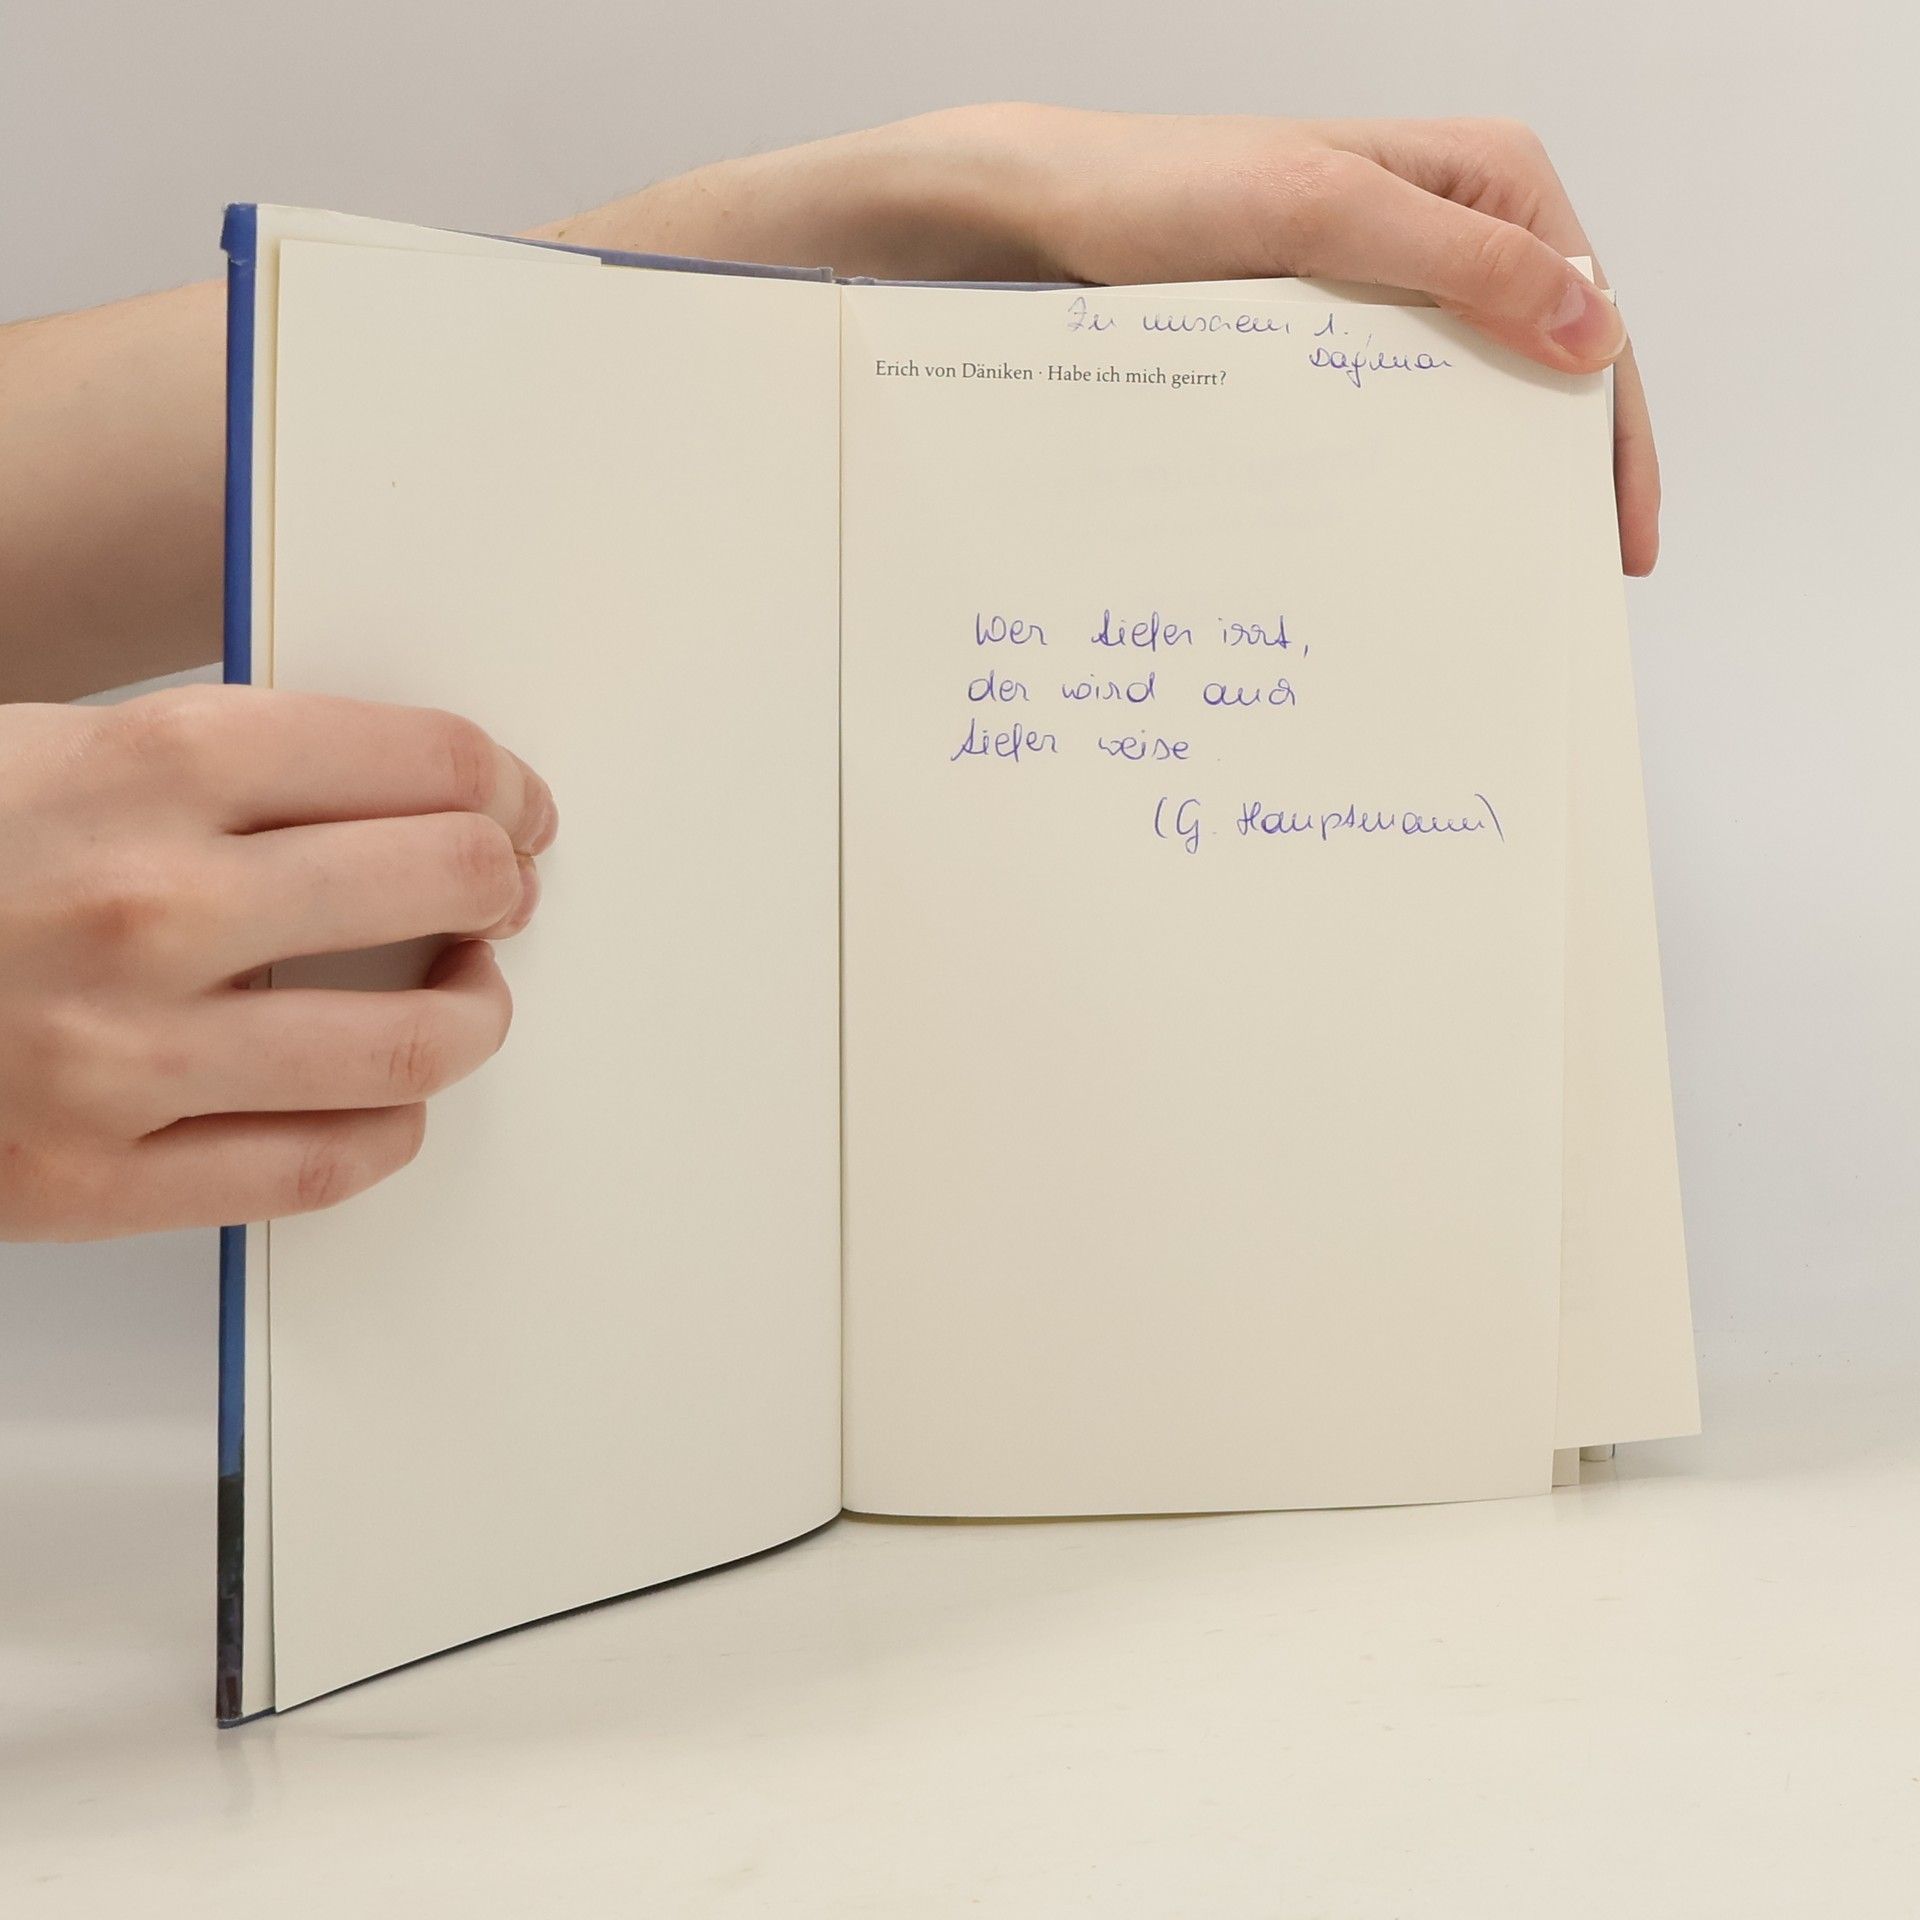 Zu unserem 1.
Dagmar
Erich von Däniken · Habe ich mich geirrt?
Wer tiefer irrt,
der wird auch
tiefer weise.
(G. Hauptmann)